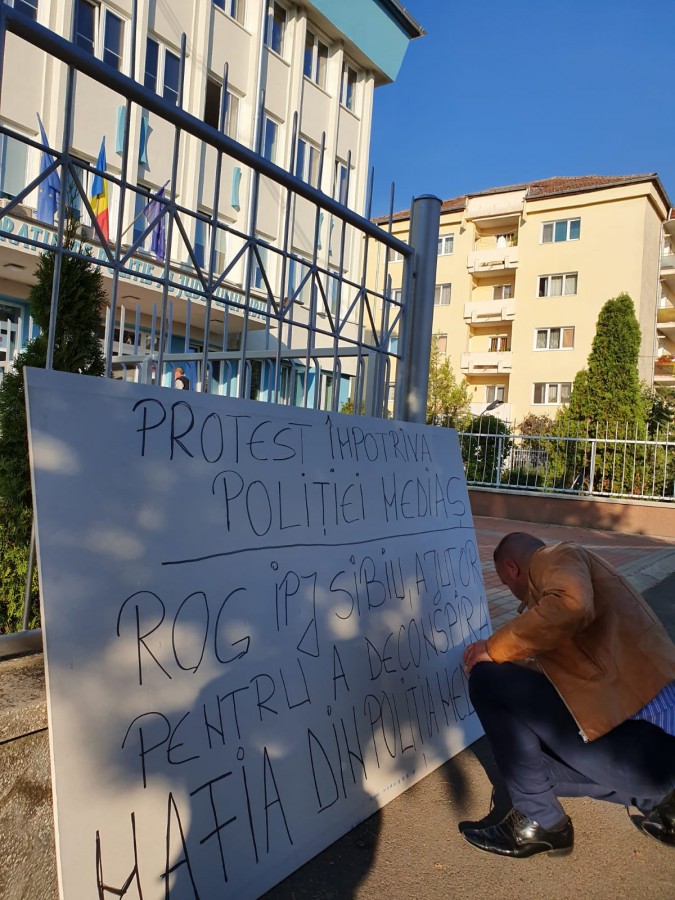 PROTEST ÎMPOTRIVA
POLIȚIEI MEDIAȘ
ROG IPJ SIBIU, AJUTOR
PENTRU A DECONSPIRA
MAFIA DIN POLIȚIA